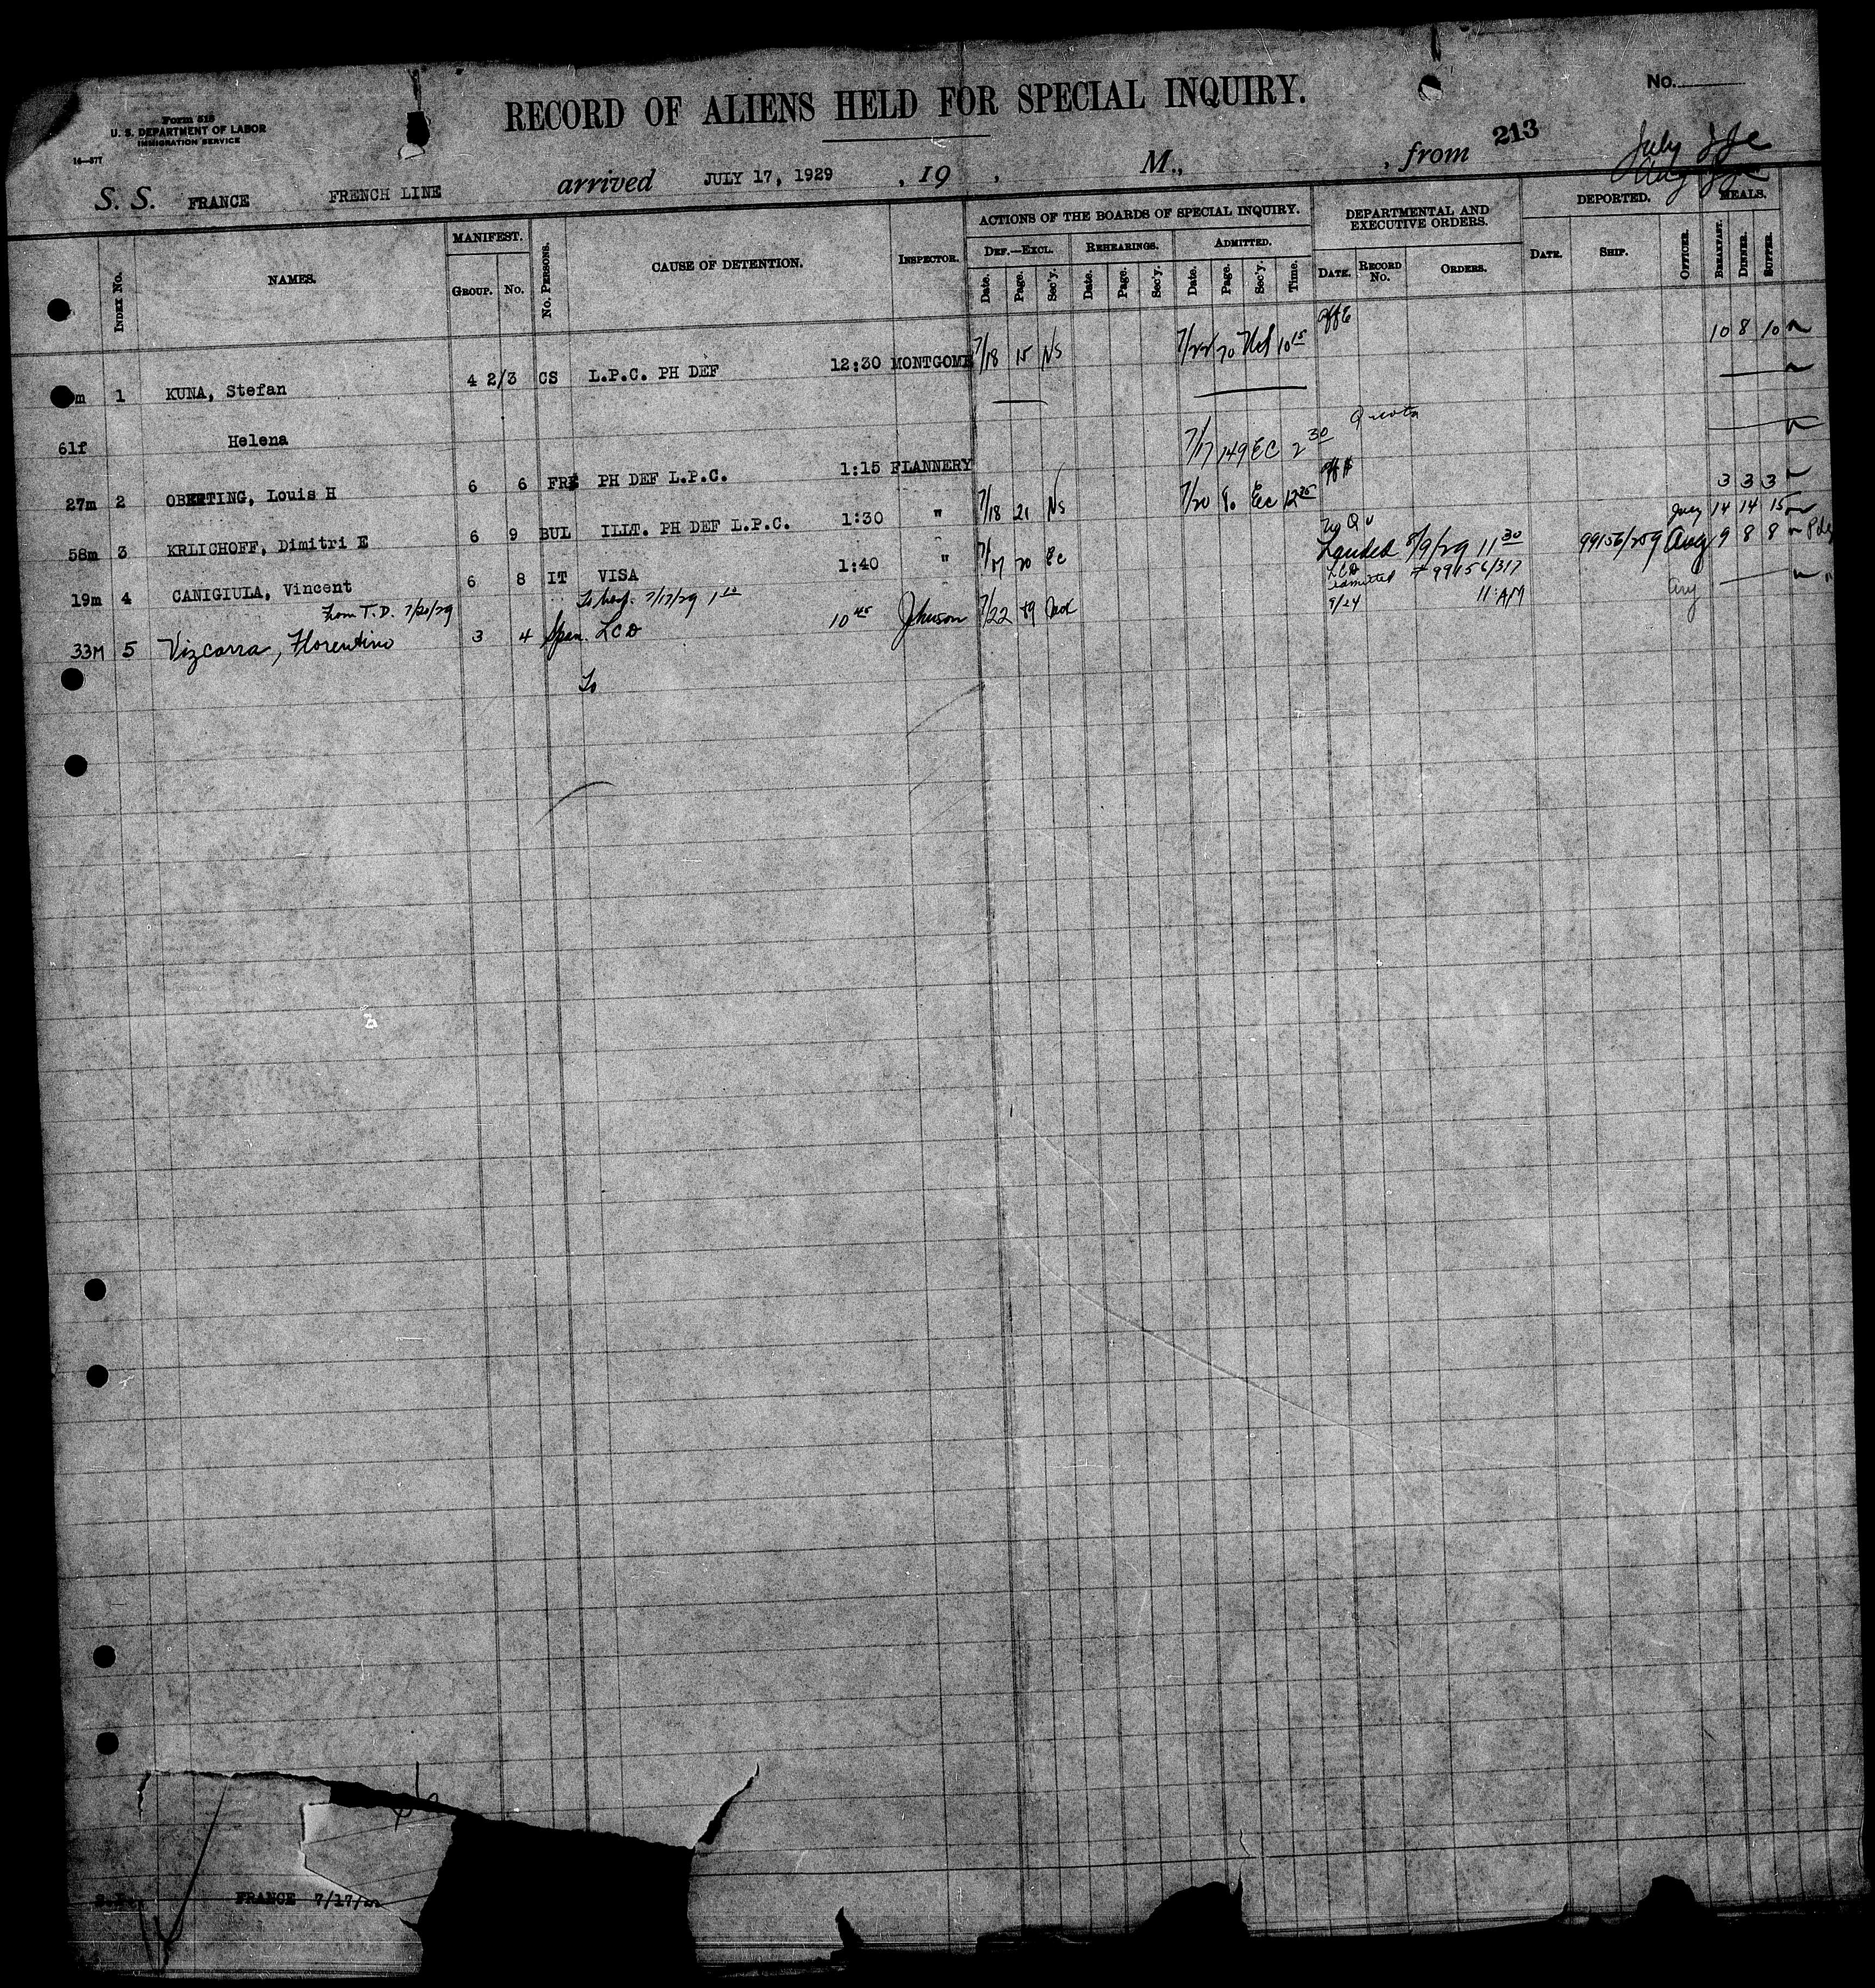 Form 518
U. S. DEPARTMENT OF LABOR
IMMIGRATION SERVICE
14—577
RECORD OF ALIENS HELD FOR SPECIAL INQUIRY.
No.
213
July
Aug
S. S. FRANCE FRENCH LINE arrived JULY 17, 1929 , 19 , M., , from
INDEX No.
NAMES.
MANIFEST.
GROUP. No.
No. PERSONS.
CAUSE OF DETENTION.
INSPECTOR.
ACTIONS OF THE BOARDS OF SPECIAL INQUIRY.
DEF.—EXCL. REHEARINGS. ADMITTED.
Date. Page. Sec'y. Date. Page. Sec'y. Date. Page. Sec'y. Time.
DEPARTMENTAL AND EXECUTIVE ORDERS.
DATE. RECORD No. ORDERS.
DEPORTED.
DATE. SHIP. OFFICER.
MEALS.
BREAKFAST. DINNER. SUPPER.
m 1 KUNA, Stefan 4 2/3 CS L.P.C. PH DEF 12:30 MONTGOME 7/18 15 NS 7/22 70 10 15 10 8 10
61f Helena
27m 2 OBERTING, Louis H 6 6 FRE PH DEF L.P.C. 1:15 FLANNERY 7/17 149 EC 2 30 Quota
58m 3 KRLICHOFF, Dimitri E 6 9 BUL ILLT. PH DEF L.P.C. 1:30 " 7/18 21 NS 7/20 8. Ec 12 25 3 3 3
19m 4 CANIGIULA, Vincent 6 8 IT VISA 1:40 " 7/17 20 Ec No Qu July 14 14 15
Landed 8/9/29 11 30 99156/259 Aug 9 8 8
To hosp. 7/17/29
From T.D. 7/20/29
33M 5 Vizcarra, Florentino 3 4 Span. LCD 10 45 Johnson 7/22 89 LCD admitted # 99156/317
9/24 11:AM
To
FRANCE 7/17/